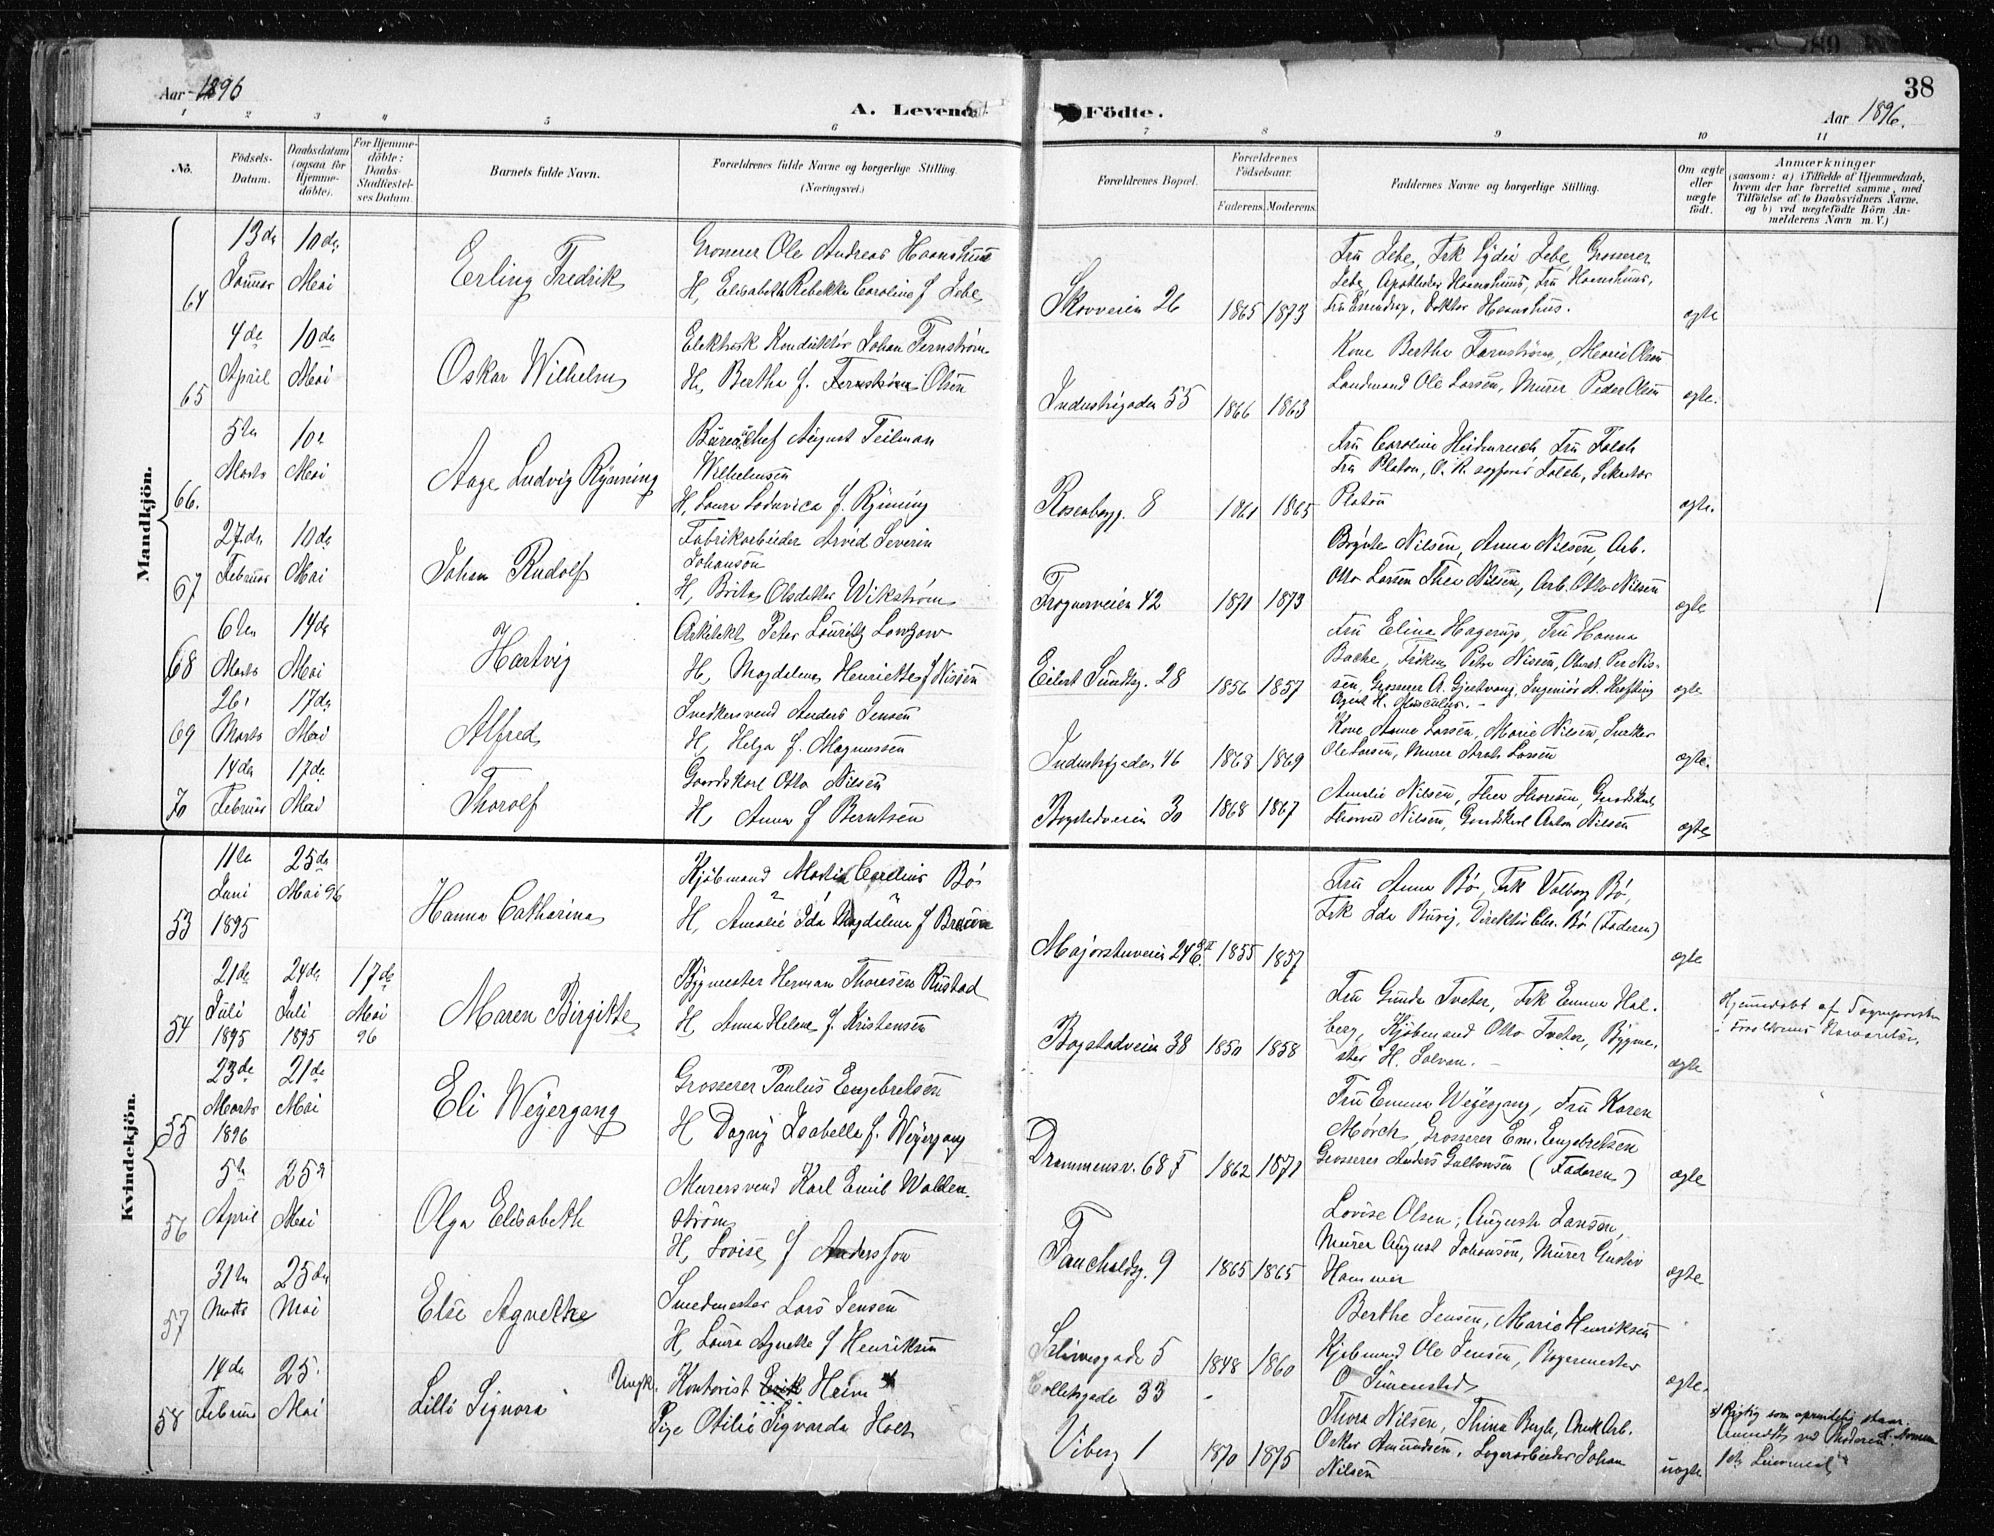 89
38
Aar 1896
A. Levende
Födte.
Aar 1896.
1 2 3 4 5 6 7 8 9 10 11
No.
Födsels-
Datum.
Daabsdatum
(ogsaa for
Hjemme-
döbte).
For Hjemme-
döbte:
Daabs-
Stadfæstel-
ses Datum.
Barnets fulde Navn.
Forældrenes fulde Navne og borgerlige Stilling.
(Næringsvei.)
Forældrenes Bopæl.
Forældrenes
Födselsaar.
Faderens. Moderens.
Faddernes Navne og borgerlige Stilling.
Om ægte
eller
uægte
födt.
Anmærkninger
(saasom: a) i Tilfælde af Hjemmedaab,
hvem der har forrettet samme, med
Tilföielse af to Daabsvidners Navne,
og b) ved uægtefödte Börn An-
melderens Navn m. V.)
Mandkjön.
64
13de
Januar
10de
Mai
Erling Fredrik
Grosserer Ole Andreas Haanshuus
H, Elisabeth Rebekka Caroline f Jebe
Skovveien 26
1865 1873
Fru Jebe, Frk Jebe, Grosserer
Jebe, Apotheker Haanshuus, Fru Haanshuus,
Doktor Haanshus.
ægte
65
4de
April
10de
Mai
Oskar Wilhelm
Elektrisk Konduktör Johan Fernström
H, Bertha f. Fernström Olsen
Industrigaden 55
1866 1863
Kone Bertha Farnström, Marie Olsen
Landmand Ole Larsen, Murer Peder Olsen
ægte.
66.
5te
Marts
10de
Mai
Aage Ludvig Rynning
Bureauchef August Teilman
Wilhelmsen
H, Laura Lodovica f. Rynning
Rosenborgg. 8
1861 1865
Fru Caroline Heidenreich Fru Falch
Fru Platou, O. R. sagförer Falch, Sekretær
Platou
ægte
67
27de
Februar
10de
Mai
Johan Rudolf
Fabrikarbeider Arvid Severin
Johanson
H, Brita Olsdatter Wikström
Frognerveien 42
1871 1873
Nilsen, Anna Nilsen, Arb.
Otto Larsen Thea Nilsen, Arb. Otto Nilsen
ægte
68
6te
Marts
14de
Mai
Hartvig
Arkitekt Peter Lauritz Lowzow
H, Magdalena Henriette f Nissen
Eilert Sundtsg. 28
1856 1857
Fru Elina Hagerup, Fru Hanna
Backe, Fröken Petra Nissen, Oberst. Per Nis-
sen, Grosserer A. Gjestvang, Ingeniör A. Krefting
Agent H. .
ægte
69
26.
Marts
17de
Mai
Alfred
Snedkersvend Anders Jensen
H, Helga f. Magnussen
Industrigaden 46
1868 1869
Kone Anna Larsen, Marie Nilsen,
Ole Larsen, Murer Larsen
ægte.
70
14de
Februar
17de
Mai
Thorolf
Gaardskarl Otto Nilsen
H, Anna f Berntsen
Bogstadveien 30
1868 1867
Amalie Nilsen, Thea Thoresen, Gaardskarl
Nilsen, Gaardskarl Anton Nilsen
ægte
Kvindekjön.
53
11te
Juni
1895
25de
Mai 96
Hanna Catharina
Kjöbmand Martin Cornelius Bö
H, Amalie Ida Magdalena f Braun
Majorstuveien 24 II
1855 1857
Fru Anna Bö, Frk Valborg Bö,
Frk Ida, Direktör Chr. Bö (Faderen)
ægte
54
21de
Juli
1895
24de
Juli
1895
17de
Mai
96
Maren Birgitte
Bygmester Herman Thoresen Rustad
H, Anna Helene f. Kristensen
Bogstadveien 38
1850 1858
Fru Gunda Tveter, Frk Emma Hal-
berg, Kjöbmand Otto Tveter, Bygme-
ster H. Solvan. –
ægte
Hjemmedöbt af Sognepresten
i Forældrenes Nærværelse.
55
23de
Marts
1896
21de
Mai
Eli Weyergang
Grosserer Paulus Engebretsen
H Dagny Isabella f. Weyergang
Drammensv. 68 F
1862 1871
Fru Emma Weyergang, Fru Karen
Mörch, Grosserer Em. Engebretsen
Grosserer Anders Gulbrandsen (Faderen)
ægte
56
5te
April
25de
Mai
Olga Elisabeth
Murersvend Karl Emil Wallen-
ström
H, Lovise f Andersson
Fauchaldsg. 9
1865 1865
Lovise Olsen, Augusta Jansen,
Murer August Johansen, Murer Gustav
Hammer
ægte
57
31te
Marts
25de
Mai
Elie Agnethe
Smedmester Lars Jensen
H, Laura Agnethe f Henriksen
Schivesgade 5
1848 1860
Berthe Jensen, Marie Henriksen
Kjöbmand Ole Jensen, Bagermester
O Simenstad
ægte.
58
14de
Februar
25.
Mai
Lilli Signora
Ungk. Kontorist Erik Heim *
Pige Otilie Sigvarda Holt
Colletsgade 33
Vibesg 1
-
1870 1875
Thora Nilsen, Thina Bergh, Arb.
Oskar Amundsen, Lagerarbeider Johan
Nilsen
uægte
x) Rigtig som oprindelig staar.
Anmeldt ved Moderen